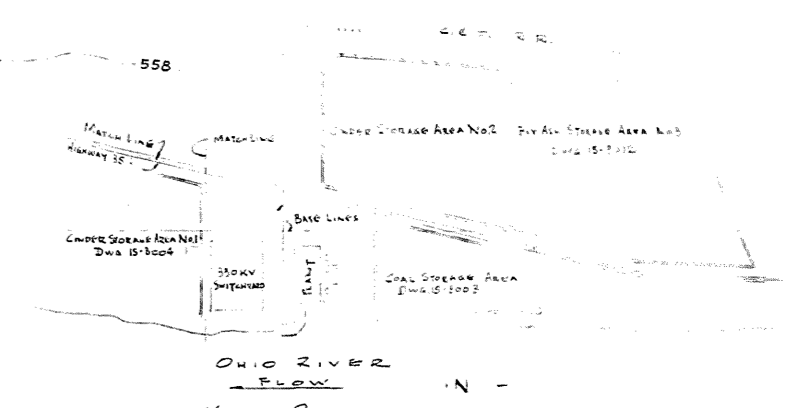 558
MATCH LINE
HIGHWAY 35
MATCH LINE
CINDER STORAGE AREA No.2
FLY ASH STORAGE AREA No.3
BASE LINES
CINDER STORAGE AREA No.1
DWG 15-3004
330KV
SWITCHYARD
PLANT
COAL STORAGE AREA
DWG.15-3003
OHIO RIVER
FLOW
N